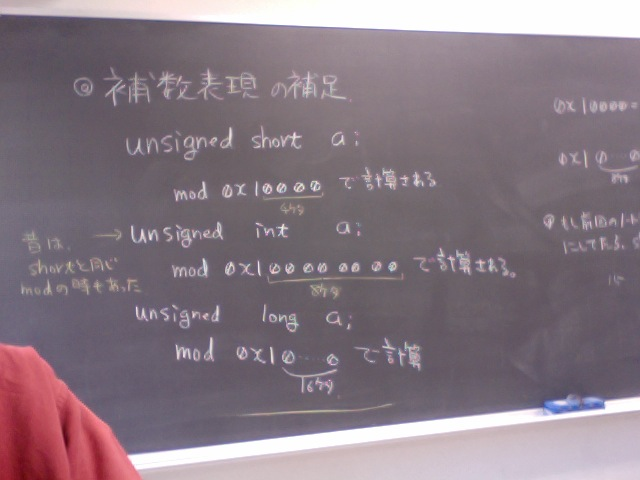 ◎ 補数表現の補足
unsigned short a;
mod 0x10000 で計算される
4ケタ
昔は、
shortと同じ
modの時もあった
→ unsigned int a;
mod 0x100000000 で計算される。
8ケタ
unsigned long a;
mod 0x10…0 で計算
16ケタ
0x10000=
0x10…0
8ケタ
もし前回のノート
にしてたら、